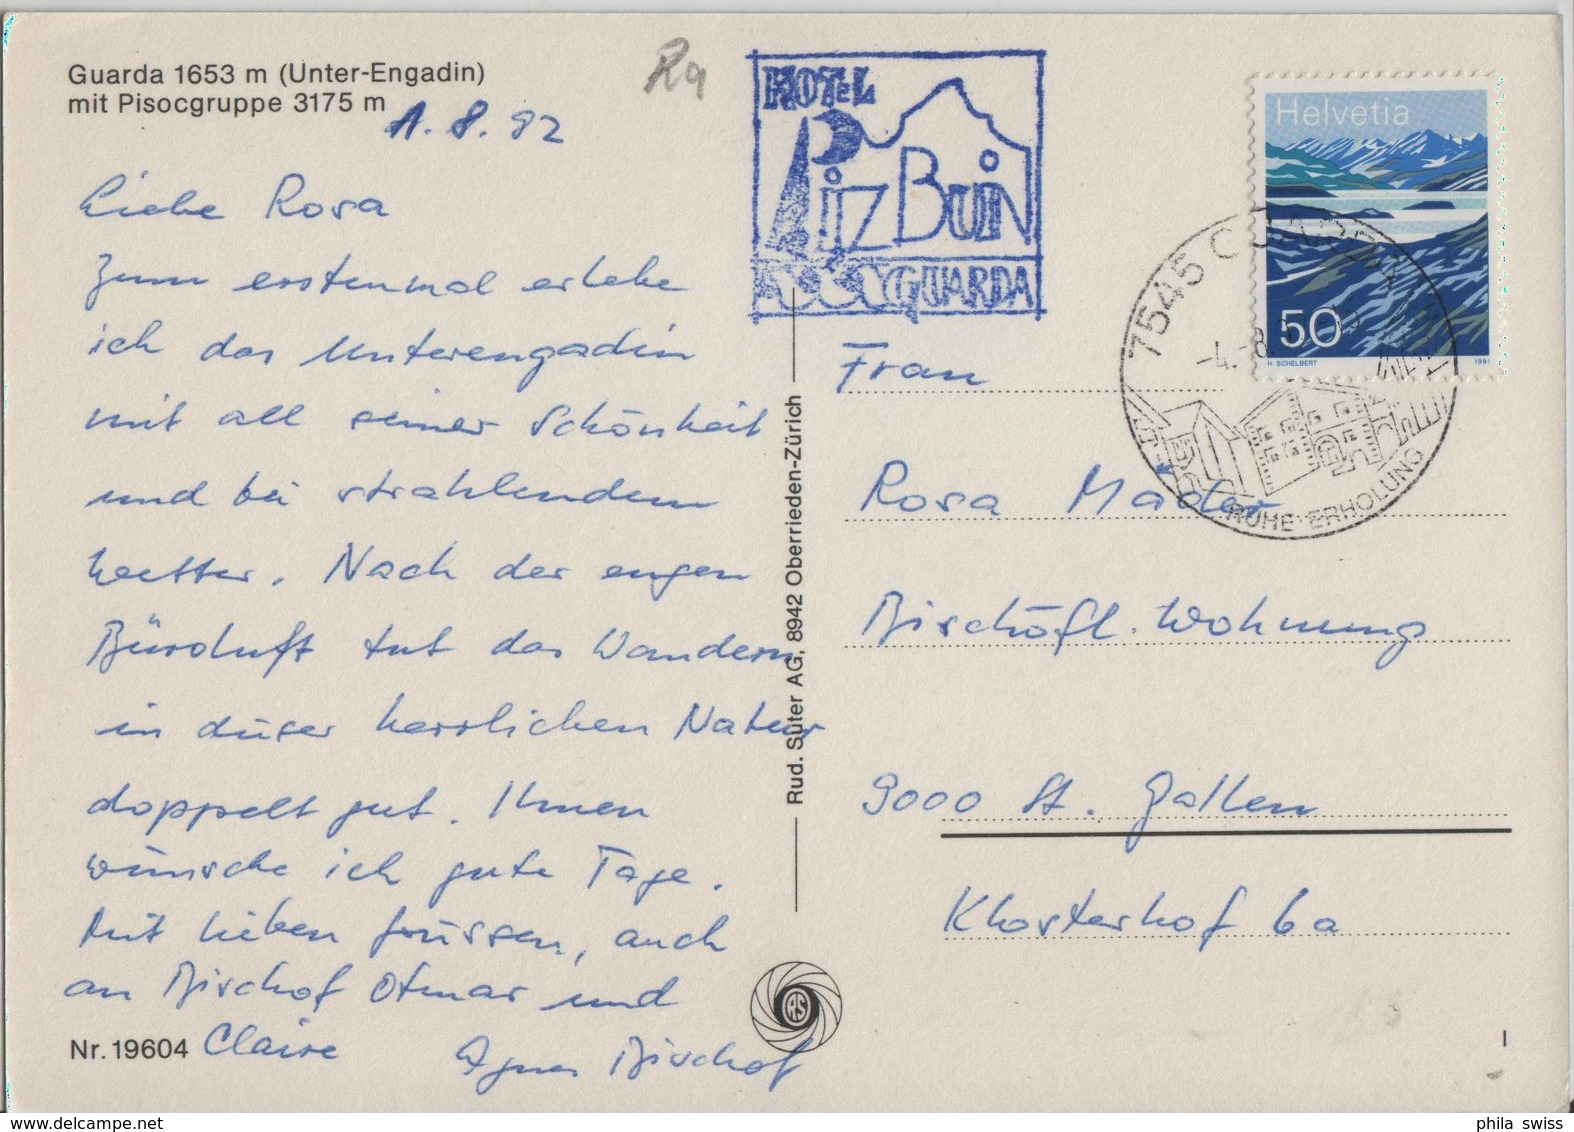 Guarda 1653 m (Unter-Engadin)
mit Pisocgruppe 3175 m
1.8.92
Liebe Rosa
Zum erstenmal erlebe
ich das Unterengadin
mit all seiner Schönheit
und bei strahlendem
Wetter. Nach der engen
Büroluft tut das Wandern
in dieser herrlichen Natur
doppelt gut. Ihnen
wünsche ich gute Tage.
Mit lieben Grüssen, auch
an Bischof Otmar und
Claire
Agnes Bischof
Nr. 19604
Rud. Suter AG, 8942 Oberrieden-Zürich
RS
HOTEL
PIZ BUIN
GUARDA
Helvetia
50
H. SCHELBERT
1991
7545 GUARDA
-4.-8.
RUHE ERHOLUNG
Frau
Rosa Mäder
Bischöfl. Wohnung
9000 St. Gallen
Klosterhof 6a
I
phila swiss